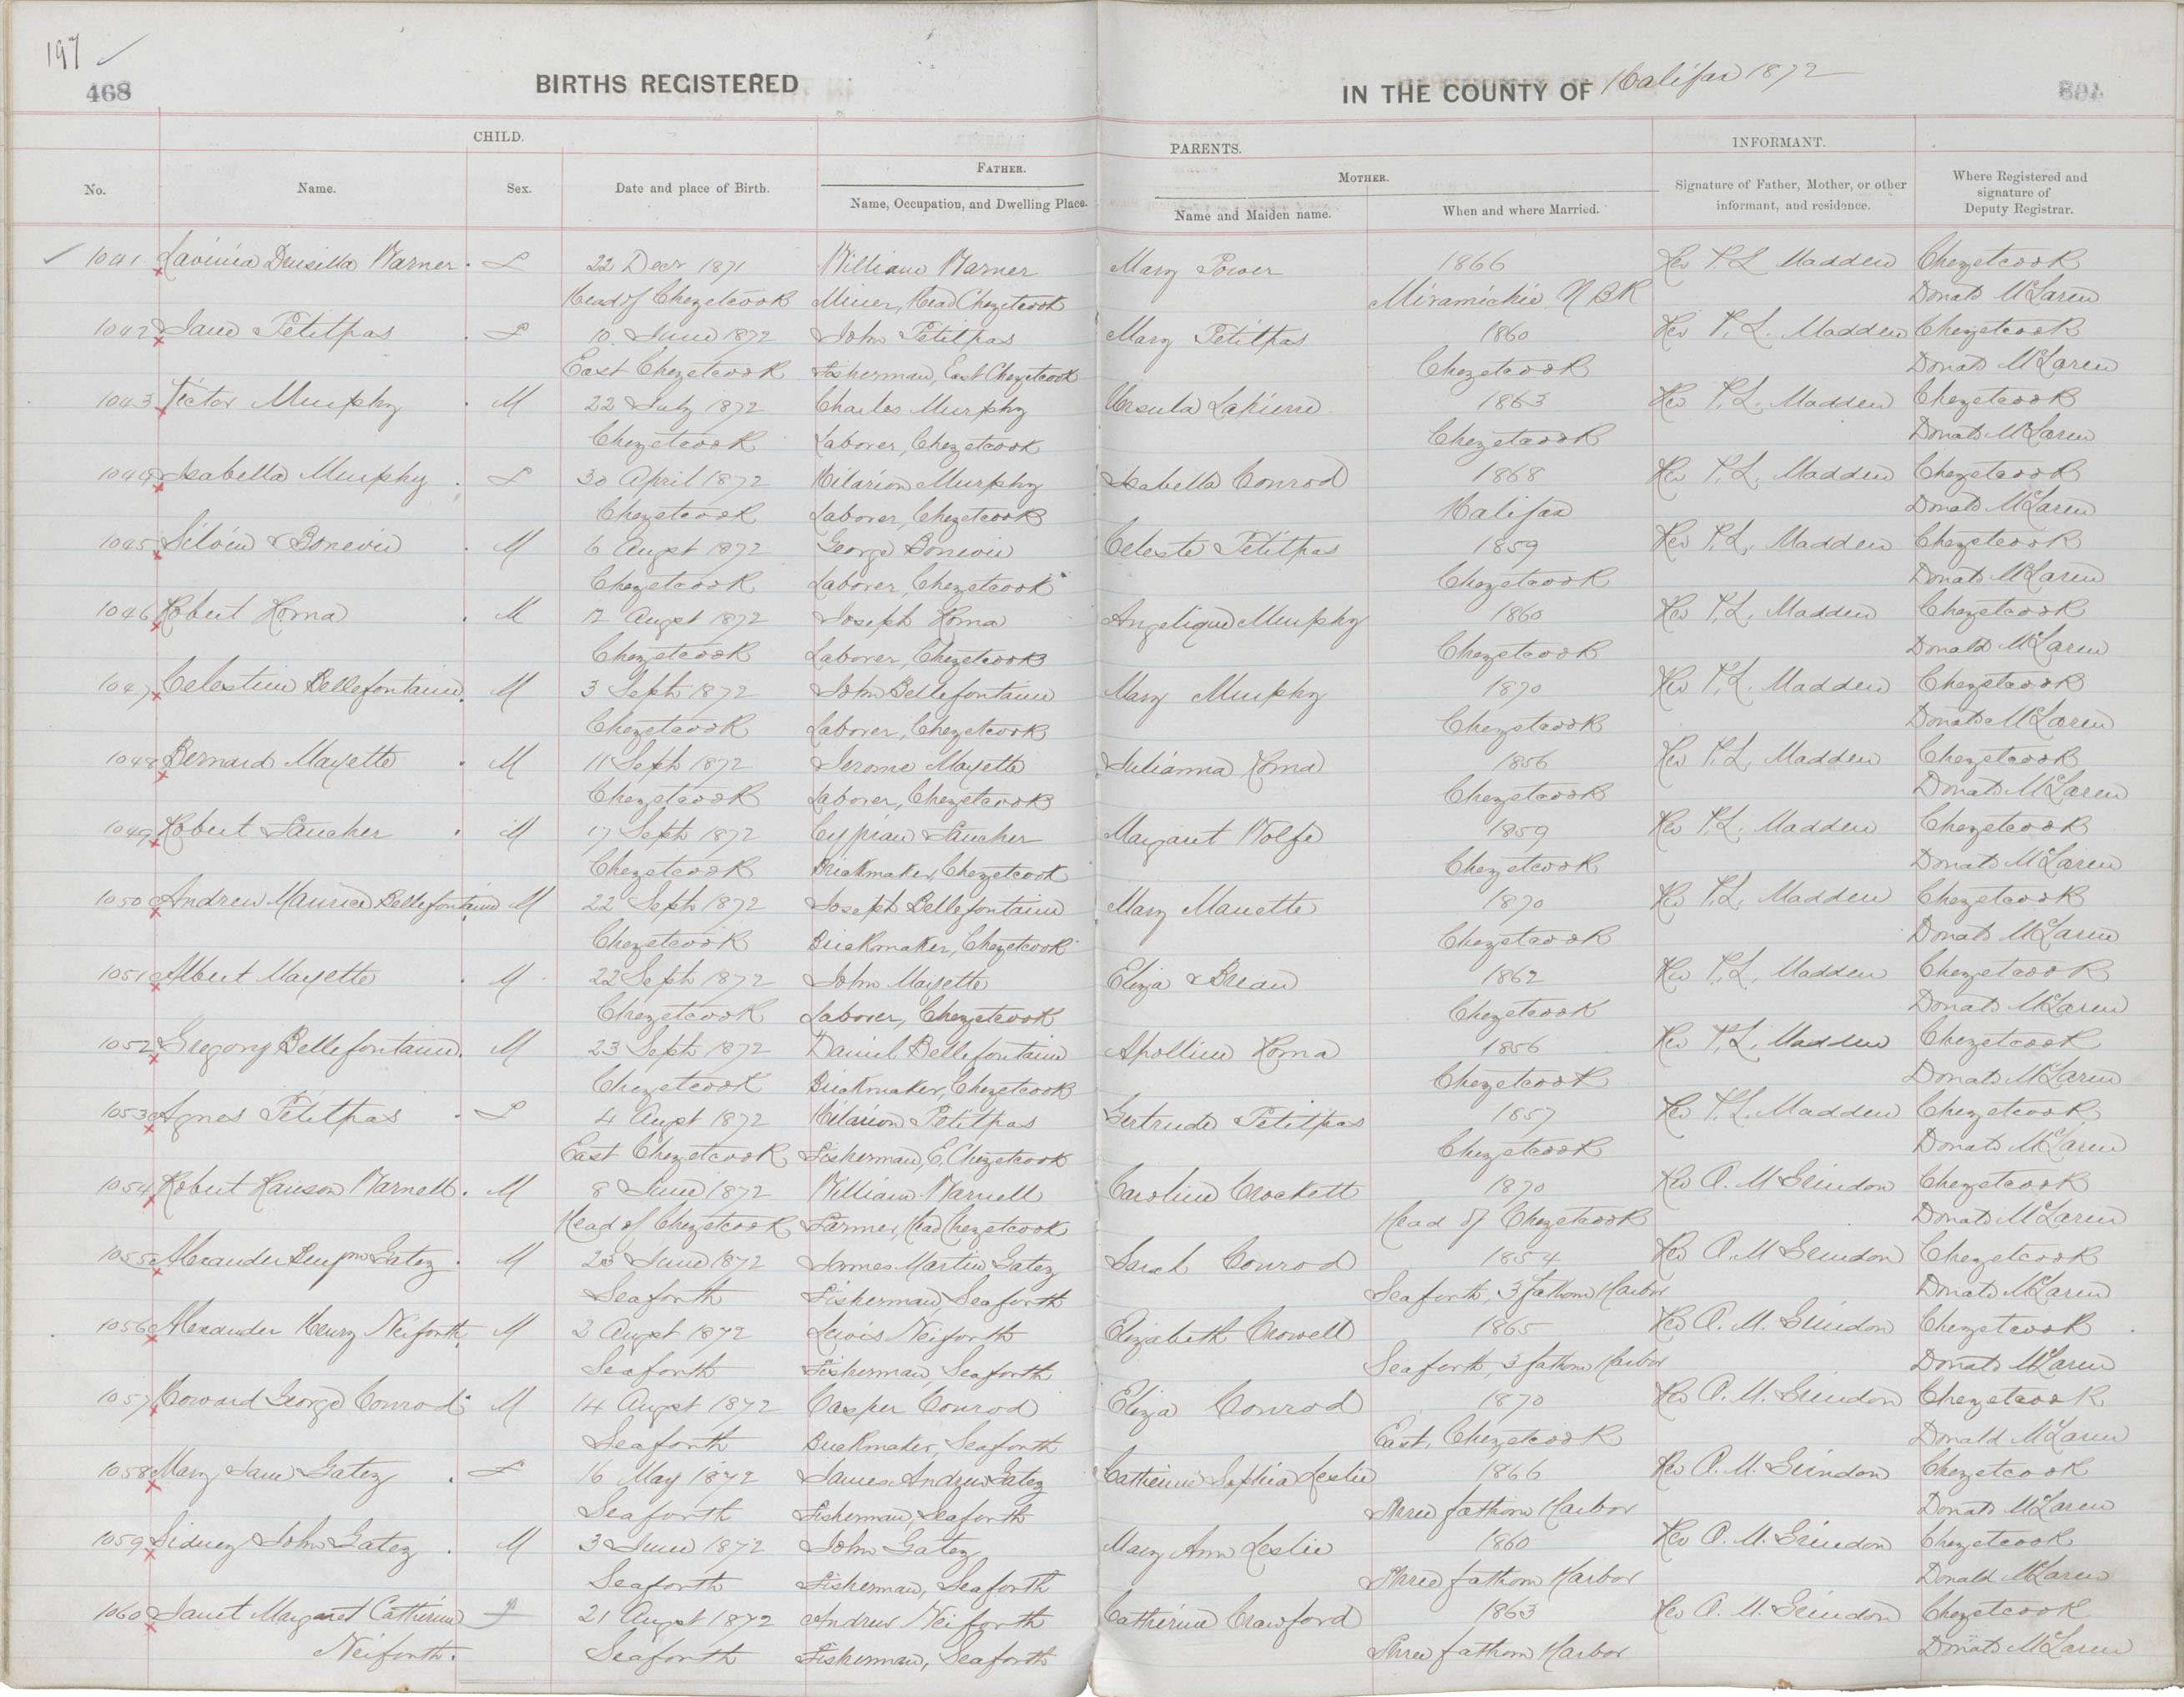 197
468
BIRTHS REGISTERED
IN THE COUNTY OF Halifax 1872
CHILD.
PARENTS.
INFORMANT.
No.
Name.
Sex.
Date and place of Birth.
FATHER.
Name, Occupation, and Dwelling Place.
MOTHER.
Name and Maiden name.
When and where Married.
Signature of Father, Mother, or other informant, and residence.
Where Registered and signature of Deputy Registrar.
1041 Lavinia Drusilla Warner F 22 Decr 1871 William Warner Mary Power 1866 Rev P. L. Madden Chezetcook
Head of Chezetcook Miner, Head Chezetcook Miramichie N B R Donald McLaren
1042 Jane Petitpas F 10 June 1872 John Petitpas Mary Petitpas 1860 Rev P. L. Madden Chezetcook
East Chezetcook Fisherman, East Chezetcook Chezetcook Donald McLaren
1043 Victor Murphy M 22 July 1872 Charles Murphy Ursula Lapierre 1863 Rev P. L. Madden Chezetcook
Chezetcook Laborer, Chezetcook Chezetcook Donald McLaren
1044 Isabella Murphy F 30 April 1872 Hilarion Murphy Isabella Conrod 1868 Rev P. L. Madden Chezetcook
Chezetcook Laborer, Chezetcook Halifax Donald McLaren
1045 Silvin Bonevie M 6 Augst 1872 George Bonevie Celeste Petitpas 1859 Rev P. L. Madden Chezetcook
Chezetcook Laborer, Chezetcook Chezetcook Donald McLaren
1046 Robert Roma M 12 Augst 1872 Joseph Roma Angelique Murphy 1860 Rev P. L. Madden Chezetcook
Chezetcook Laborer, Chezetcook Chezetcook Donald McLaren
1047 Celestine Bellefontaine M 3 Septr 1872 John Bellefontaine Mary Murphy 1870 Rev P. L. Madden Chezetcook
Chezetcook Laborer, Chezetcook Chezetcook Donald McLaren
1048 Bernard Mayette M 11 Septr 1872 Jerome Mayette Julianna Roma 1856 Rev P. L. Madden Chezetcook
Chezetcook Laborer, Chezetcook Chezetcook Donald McLaren
1049 Robert Faucher M 17 Septr 1872 Cyprian Faucher Margaret Wolfe 1859 Rev P. L. Madden Chezetcook
Chezetcook Brickmaker, Chezetcook Chezetcook Donald McLaren
1050 Andrew Maurice Bellefontaine M 22 Septr 1872 Joseph Bellefontaine Mary Manette 1870 Rev P. L. Madden Chezetcook
Chezetcook Brickmaker, Chezetcook Chezetcook Donald McLaren
1051 Albert Mayette M 22 Septr 1872 John Mayette Eliza Breau 1862 Rev P. L. Madden Chezetcook
Chezetcook Laborer, Chezetcook Chezetcook Donald McLaren
1052 Gregory Bellefontaine M 23 Septr 1872 Daniel Bellefontaine Apolline Roma 1856 Rev P. L. Madden Chezetcook
Chezetcook Brickmaker, Chezetcook Chezetcook Donald McLaren
1053 Agnes Petitpas F 4 Augst 1872 Hilarion Petitpas Gertrude Petitpas 1857 Rev P. L. Madden Chezetcook
East Chezetcook Fisherman, E. Chezetcook Chezetcook Donald McLaren
1054 Robert Hauson Warnell M 8 June 1872 William Warnell Caroline Crockett 1870 Rev O. M Grindon Chezetcook
Head of Chezetcook Farmer, Head Chezetcook Head of Chezetcook Donald McLaren
1055 Alexander Benjmn Gatez M 23 June 1872 James Martin Gatez Sarah Conrod 1854 Rev O. M Grindon Chezetcook
Seaforth Fisherman, Seaforth Seaforth, 3 fathom Harbor Donald McLaren
1056 Alexander Henry Neiforth M 2 Augst 1872 Lewis Neiforth Elizabeth Crowell 1865 Rev O. M. Grindon Chezetcook
Seaforth Fisherman, Seaforth Seaforth, 3 fathom Harbor Donald McLaren
1057 Howard George Conrod M 14 Augst 1872 Casper Conrod Eliza Conrod 1870 Rev O. M. Grindon Chezetcook
Seaforth Brickmaker, Seaforth East, Chezetcook Donald McLaren
1058 Mary Jane Gatez F 16 May 1872 James Andrew Gatez Catherine Sophia Leslie 1866 Rev O. M. Grindon Chezetcook
Seaforth Fisherman, Seaforth Three fathom Harbor Donald McLaren
1059 Sidney John Gatez M 3 June 1872 John Gatez Mary Ann Leslie 1860 Rev O. M. Grindon Chezetcook
Seaforth Fisherman, Seaforth Three fathom Harbor Donald McLaren
1060 Janet Margaret Catherine F 21 Augst 1872 Andrew Neiforth Catherine Crawford 1863 Rev O. M. Grindon Chezetcook
Neiforth. Seaforth Fisherman, Seaforth Three fathom Harbor Donald McLaren